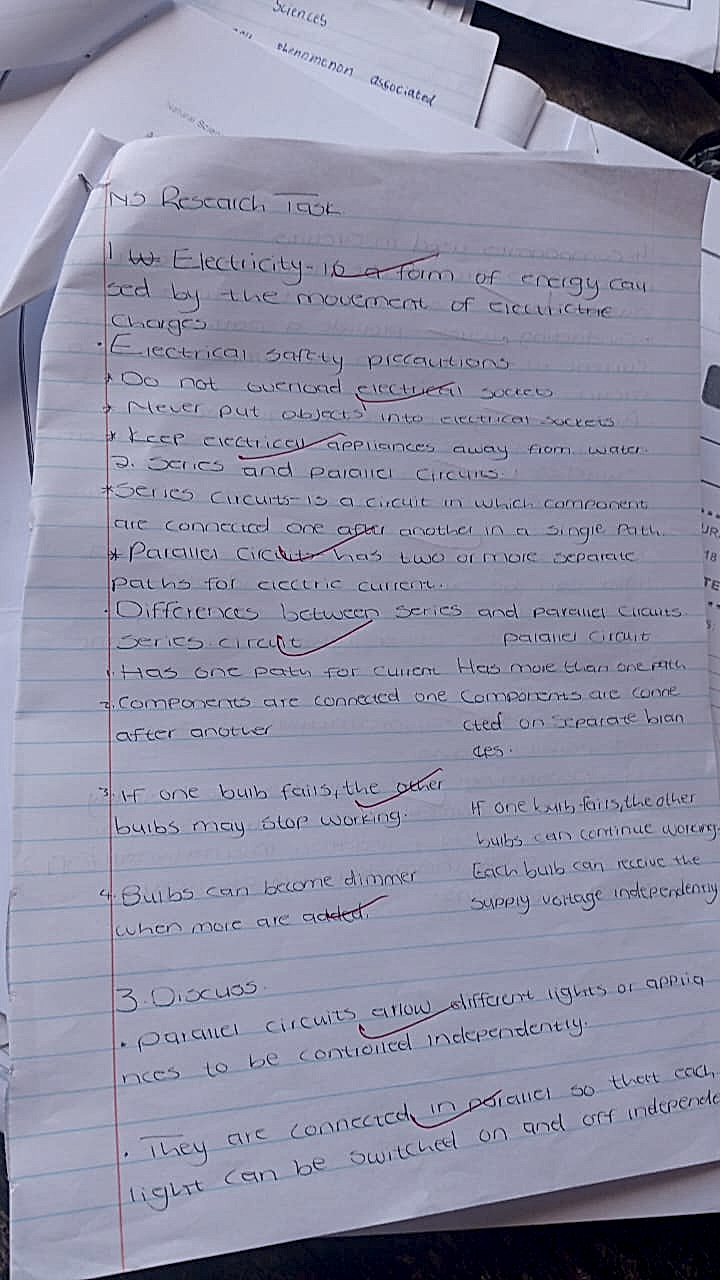 Sciences
phenomenon associated
Natural Scien
NS Research Task
1 W Electricity- is a form of energy cau
sed by the movement of electrictric
charges
• Electrical safty precautions
* Do not overload electrical sockets
* Never put objects into electrical sockets
* Keep electrical appliances away from water.
2. Series and Parallel circuits.
* Series circuits- is a circuit in which component
are connected one after another in a single path.
* Parallel circuits has two or more separate
paths for electric current.
• Differences between series and parallel circuits.
Series circuit parallel circuit
1. Has one path for current Has more than one path
2. Components are connected one Components are conne
after another cted on separate bran
ces.
3. If one bulb fails, the other If one bulb fails, the other
bulbs may stop working. bulbs can continue working.
4. Bulbs can become dimmer Each bulb can receive the
when more are added. supply voltage independently
3. Discuss.
• Parallel circuits allow different lights or applia
nces to be controlled independently.
• They are connected in parallel so that each
light can be switched on and off independe
UR
18
TE